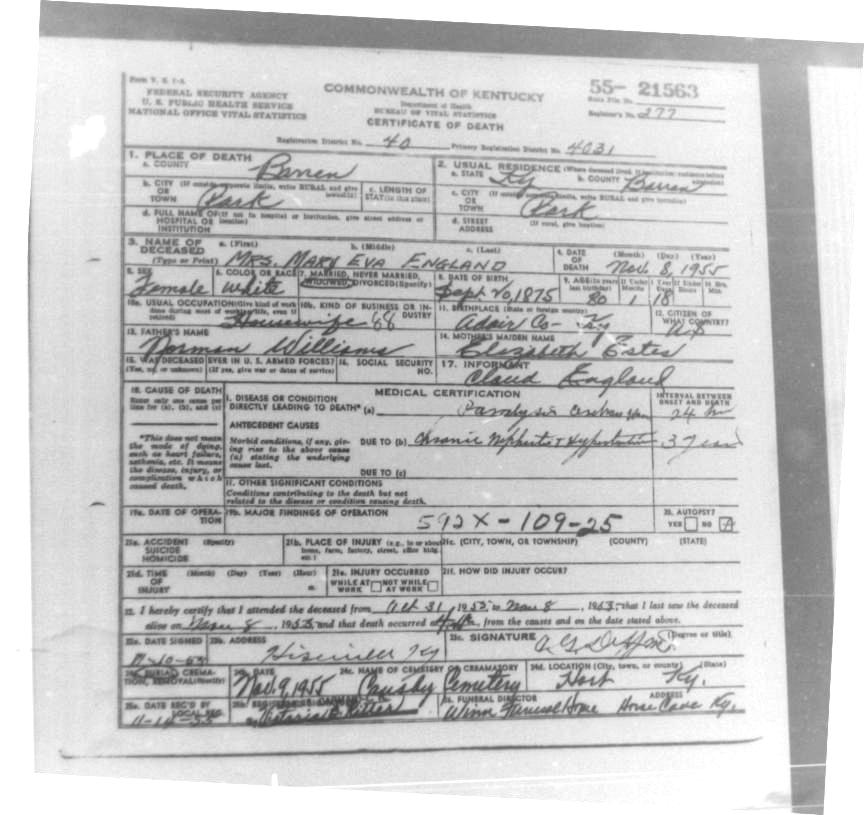 Form V. S. 1-A
FEDERAL SECURITY AGENCY
U. S. PUBLIC HEALTH SERVICE
NATIONAL OFFICE VITAL STATISTICS
COMMONWEALTH OF KENTUCKY
Department of Health
BUREAU OF VITAL STATISTICS
CERTIFICATE OF DEATH
55- 21563
State File No.
Registrar's No. 277
Registration District No. 40 Primary Registration District No. 4031
1. PLACE OF DEATH
a. COUNTY Barren
2. USUAL RESIDENCE (Where deceased lived.
a. STATE Ky b. COUNTY Barren
b. CITY (If outside corporate limits, write RURAL and give
OR
TOWN Park
c. LENGTH OF
STAY (in this place)
c. CITY
OR
TOWN Park
d. FULL NAME OF (If not in hospital or institution, give street address or
HOSPITAL OR location)
INSTITUTION
d. STREET (If rural, give location)
ADDRESS
3. NAME OF DECEASED a. (First) b. (Middle) c. (Last)
(Type or Print) MRS. MARY EVA ENGLAND
4. DATE OF DEATH (Month) (Day) (Year)
Nov. 8, 1955
5. SEX
Female
6. COLOR OR RACE
White
7. MARRIED, NEVER MARRIED,
WIDOWED, DIVORCED (Specify)
8. DATE OF BIRTH
Sept. 20, 1875
9. AGE (In years last birthday) If Under 1 Year If Under 24 Hrs.
Months Days Hours Min.
80 1 18
10a. USUAL OCCUPATION (Give kind of work
done during most of working life, even if
retired) Housewife
10b. KIND OF BUSINESS OR INDUSTRY
11. BIRTHPLACE (State or foreign country)
Adair Co- Ky
12. CITIZEN OF
WHAT COUNTRY?
13. FATHER'S NAME
Norman Williams
14. MOTHER'S MAIDEN NAME
Elizabeth Estes
15. WAS DECEASED EVER IN U. S. ARMED FORCES?
(Yes, no, or unknown) (If yes, give war or dates of service)
16. SOCIAL SECURITY
NO.
17. INFORMANT
Claud England
18. CAUSE OF DEATH
Enter only one cause per
line for (a), (b), and (c)
MEDICAL CERTIFICATION
INTERVAL BETWEEN
ONSET AND DEATH
I. DISEASE OR CONDITION
DIRECTLY LEADING TO DEATH* (a) 24 hr
ANTECEDENT CAUSES
*This does not mean
the mode of dying,
such as heart failure,
asthenia, etc. It means
the disease, injury, or
complication which
caused death.
Morbid conditions, if any, giv-
ing rise to the above cause
(a) stating the underlying
cause last.
DUE TO (b) Chronic Nephritis & Hypertension 3 years
DUE TO (c)
II. OTHER SIGNIFICANT CONDITIONS
Conditions contributing to the death but not
related to the disease or condition causing death.
19a. DATE OF OPERA-
TION
19b. MAJOR FINDINGS OF OPERATION
592X-109-25
20. AUTOPSY?
YES NO
21a. ACCIDENT (Specify)
SUICIDE
HOMICIDE
21b. PLACE OF INJURY (e.g., in or about
home, farm, factory, street, office bldg.
etc.)
21c. (CITY, TOWN, OR TOWNSHIP) (COUNTY) (STATE)
21d. TIME (Month) (Day) (Year) (Hour)
OF
INJURY m.
21e. INJURY OCCURRED
WHILE AT WORK NOT WHILE AT WORK
21f. HOW DID INJURY OCCUR?
22. I hereby certify that I attended the deceased from Oct 31, 1955, to Nov 8, 1955, that I last saw the deceased
alive on Nov 8, 1955, and that death occurred at m., from the causes and on the date stated above.
23a. DATE SIGNED
23b. ADDRESS
Hiseville Ky
23c. SIGNATURE (Degree or title)
24a. BURIAL, CREMA-
TION, REMOVAL (Specify)
24b. DATE
Nov. 9, 1955
24c. NAME OF CEMETERY OR CREMATORY
Causby Cemetery
24d. LOCATION (City, town, or county) (State)
Ky.
25a. DATE REC'D BY
LOCAL REG.
26. FUNERAL DIRECTOR ADDRESS
Winn Funeral Home Horse Cave Ky.